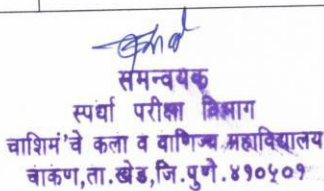 समन्वयक
स्पर्धा परीक्षा विभाग
चाशिमं'चे कला व वाणिज्य महाविद्यालय
चाकण,ता.खेड,जि.पुणे.४१०५०१